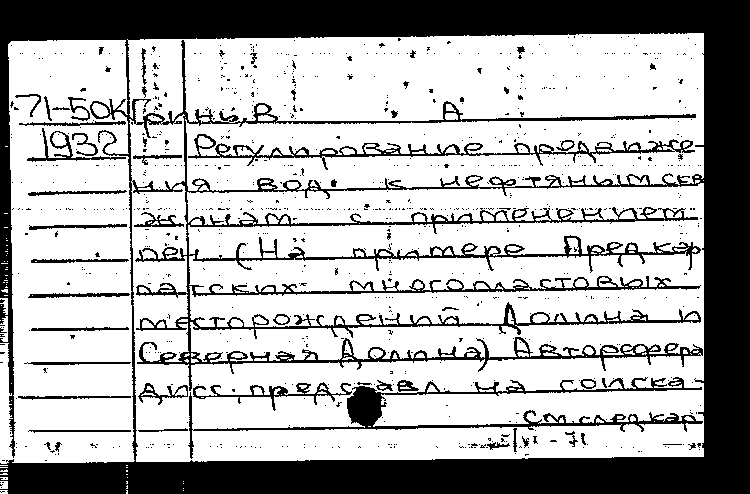 71-50К Гринь, В А
1932 Регулирование продвиже-
ния вод к нефтяным сква
жинам с применением
пен (На примере Предкар-
патских многопластовых
месторождений Долина и
Северная Долина) Автореферат
дисс. представл. на соиска-
См. след карт
VI - 71